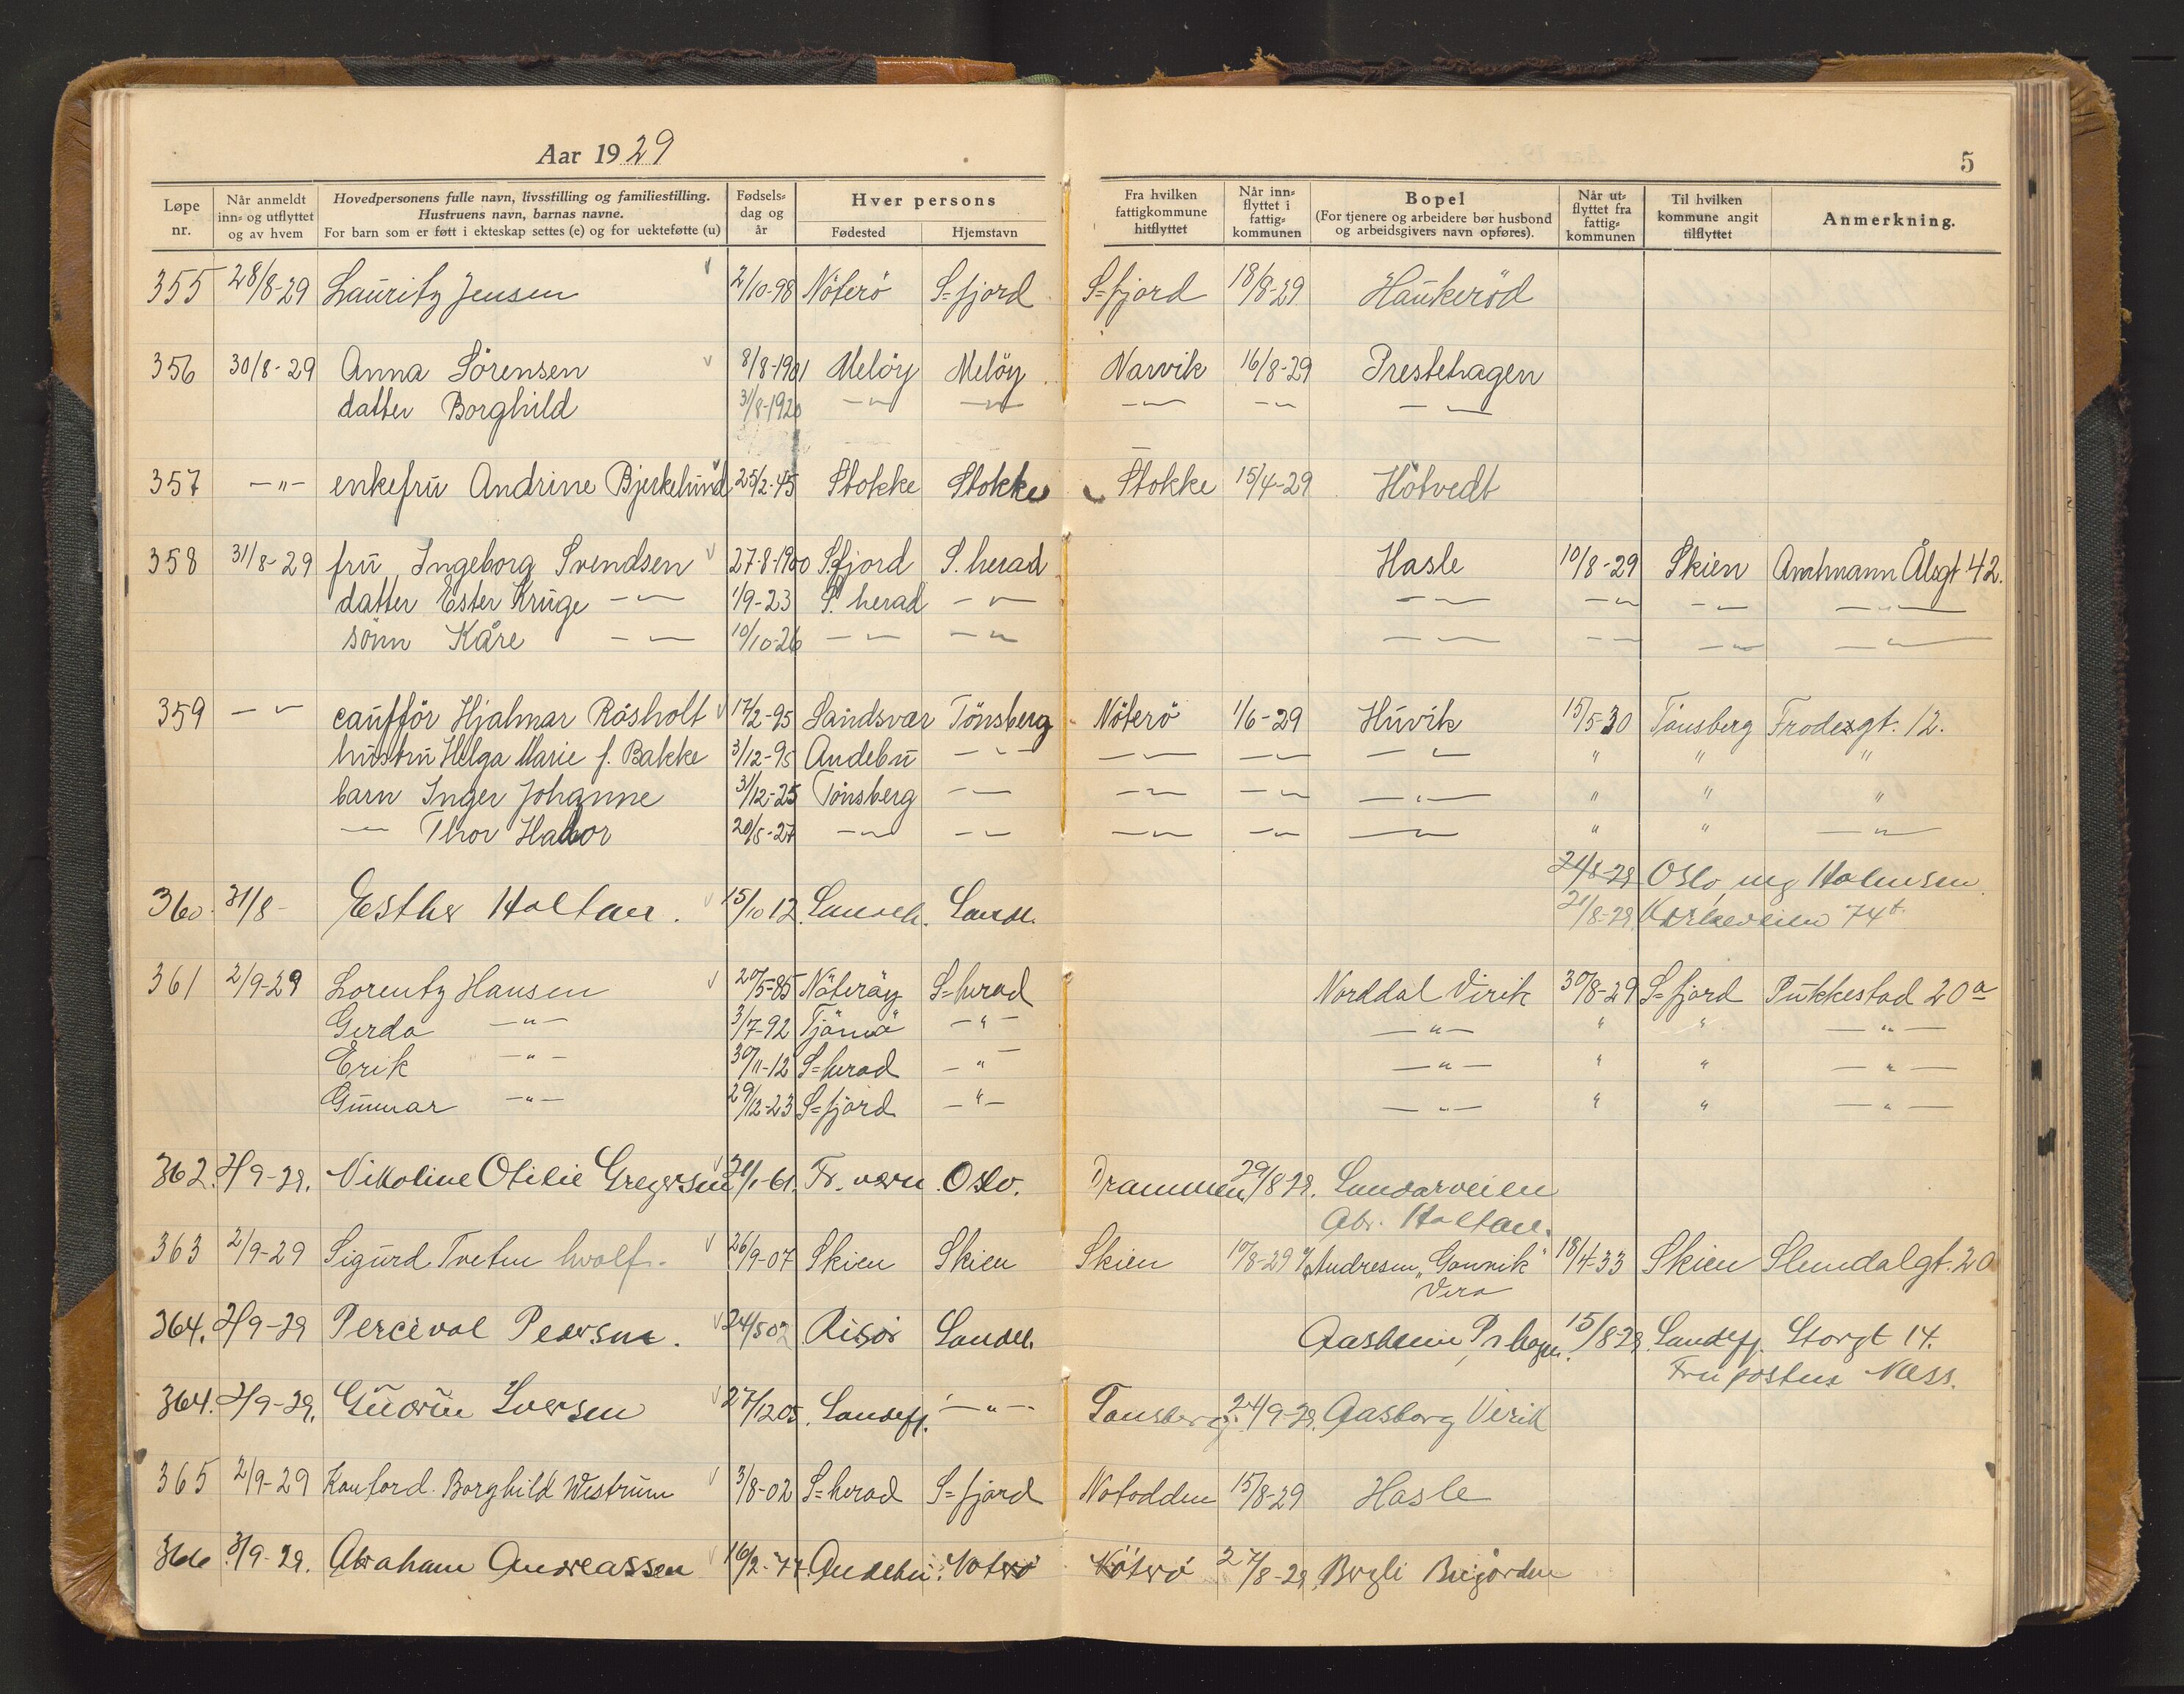 Aar 1929
5
Løpe nr. | Når anmeldt inn- og utflyttet og av hvem | Hovedpersonens fulle navn, livsstilling og familiestilling. Hustruens navn, barnas navne. For barn som er føtt i ekteskap settes (e) og for uekteføtte (u) | Fødsels- dag og år | Hver persons Fødested | Hjemstavn | Fra hvilken fattigkommune hitflyttet | Når inn- flyttet i fattig- kommunen | Bopel (For tjenere og arbeidere bør husbond og arbeidsgivers navn opføres). | Når ut- flyttet fra fattig- kommunen | Til hvilken kommune angit tilflyttet | Anmerkning.
355 28/8-29 Lauritz Jensen 2/10-98 Nöterö S=fjord S=fjord 18/8-29 Haukeröd
356 30/8-29 Anna Sörensen 8/8-1901 Melöy Melöy Narvik 16/8-29 Prestehagen
datter Borghild 31/8-1920 -"- -"- -"- -"- -"-
357 -"- enkefru Andrine Bjerkelund 25/2-45 Stokke Stokke Stokke 15/4-29 Hötvedt
358 31/8-29 fru Ingeborg Svendsen 27-8-1900 S.fjord S. herad Hasle 10/8-29 Skien Amtmann Ålsgt 42.
datter Ester Kruge -"- 1/9-23 S. herad -"- -"- -"- -"- -"-
sönn Kåre -"- 10/10-26 -"- -"- -"- -"- -"- -"-
359 -"- caufför Hjalmar Råsholt 17/2-95 Sandsvær Tönsberg Nöterö 1/6-29 Huvik 15/5-30 Tönsberg Frodesgt. 12.
hustru Helga Marie f. Bakke 3/12-95 Andebu -"- -"- -"- -"- " " "
barn Inger Johanne 31/12-25 Tönsberg -"- -"- -"- -"- " " "
-"- Thor Halvor 20/5-27 -"- -"- -"- -"- -"- " " -"-
21/8-29 Oslo, Holmsen
360. 31/8- Esther Holtan. 15/10 12. Sandeh. Sandeh. 21/8-29 74
361 2/9-29 Lorentz Hansen 20/5-85 Nöteröy S=herad Norddal Virik 30/8-29 S=fjord Pukkestad 20a
Gerda -"- 3/7-92 Tjömö -"- -"- " " -"-
Erik -"- 30/11-12 S=herad -"- -"- " " -"-
Gunnar -"- 29/12-23 S=fjord -"- -"- " " -"-
362. 2/9-29. Nikoline Otilie Gregersen 21/1-61. Fr.værn Oslo. Drammen 29/8-29. Sandarveien
Abr. Holtan.
363 2/9-29 Sigurd Tveten hvalf. 26/9-07 Skien Skien Skien 10/8-29 Andresen "Granvik" 18/4-33 Skien Slemdalgt. 20
Vera
364. 2/9-29 Perceval Pedersen. 24/5 02 Risör Sandeh. Aasheim Pr hagen. 15/8-29 Sandefj. Storgt 14.
Fru Næss.
364. 2/9-29. Gudrun Iversen 27/12 05. Sandefj. -"- Tønsberg. 24/9-29. Aasborg Virik
365 2/9-29 Kontord. Borghild Westrum 3/8-02 S=herad S=fjord Notodden 15/8-29 Hasle
366 3/9-29. Abraham Andreassen 16/2-77. Andebu. Nöterö Nöterö 27/8-29 Bugården